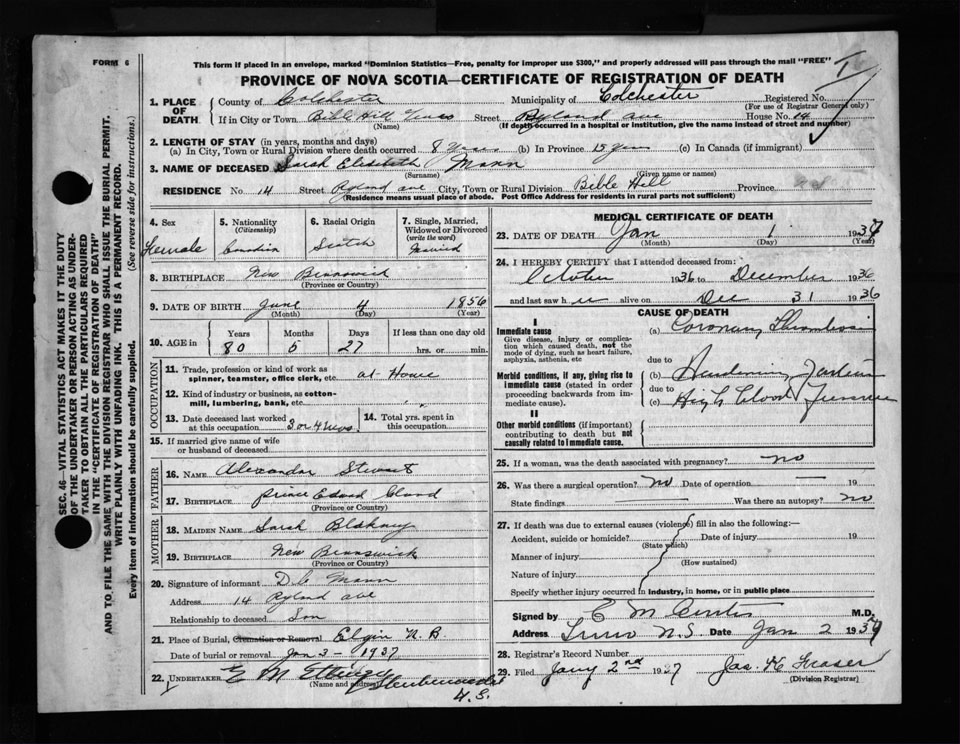 FORM 6
This form if placed in an envelope, marked "Dominion Statistics—Free, penalty for improper use $300," and properly addressed will pass through the mail "FREE"
PROVINCE OF NOVA SCOTIA—CERTIFICATE OF REGISTRATION OF DEATH
SEC. 46—VITAL STATISTICS ACT MAKES IT THE DUTY
OF THE UNDERTAKER OR PERSON ACTING AS UNDER-
TAKER TO OBTAIN ALL THE PARTICULARS REQUIRED
IN THE "CERTIFICATE OF REGISTRATION OF DEATH"
AND TO FILE THE SAME WITH THE DIVISION REGISTRAR WHO SHALL ISSUE THE BURIAL PERMIT.
WRITE PLAINLY WITH UNFADING INK. THIS IS A PERMANENT RECORD.
Every item of information should be carefully supplied. (See reverse side for instructions.)
1. PLACE OF DEATH. County of Colchester Municipality of Colchester Registered No.
(For use of Registrar General only)
If in City or Town Bible Hill Truro Street Ryland Ave House No. 14
(Name) (If death occurred in a hospital or institution, give the name instead of street and number)
2. LENGTH OF STAY (in years, months and days)
(a) In City, Town or Rural Division where death occurred 8 years (b) In Province 15 years (c) In Canada (if immigrant)
3. NAME OF DECEASED Sarah Elizabeth Mann
(Surname) (Given name or names)
RESIDENCE No. 14 Street Ryland ave City, Town or Rural Division Bible Hill Province
(Residence means usual place of abode. Post Office Address for residents in rural parts not sufficient)
4. Sex Female
5. Nationality (Citizenship) Canadian
6. Racial Origin Scotch
7. Single, Married, Widowed or Divorced (write the word)
8. BIRTHPLACE New Brunswick
(Province or Country)
9. DATE OF BIRTH June 4 1856
(Month) (Day) (Year)
10. AGE in Years 80 Months 5 Days 27 If less than one day old hrs. or min.
OCCUPATION
11. Trade, profession or kind of work as spinner, teamster, office clerk, etc. at Home
12. Kind of industry or business, as cotton-mill, lumbering, bank, etc.
13. Date deceased last worked at this occupation 3 or 4 mos.
14. Total yrs. spent in this occupation
15. If married give name of wife or husband of deceased
FATHER
16. NAME Alexander Stewart
17. BIRTHPLACE Prince Edward Island
(Province or Country)
MOTHER
18. MAIDEN NAME Sarah
19. BIRTHPLACE New Brunswick
(Province or Country)
20. Signature of informant Mann
Address 14 Ryland ave
Relationship to deceased Son
21. Place of Burial, Cremation or Removal Elgin N.B.
Date of burial or removal Jan 3 - 1937
22. UNDERTAKER E M
(Name and address)
N.S.
MEDICAL CERTIFICATE OF DEATH
23. DATE OF DEATH Jan 1 1937
(Month) (Day) (Year)
24. I HEREBY CERTIFY that I attended deceased from:
October 1936 to December 1936
and last saw h er alive on Dec 31 1936
CAUSE OF DEATH
I
Immediate cause
Give disease, injury or complication which caused death, not the mode of dying, such as heart failure, asphyxia, asthenia, etc
(a) Coronary Thrombosis
due to
Morbid conditions, if any, giving rise to immediate cause (stated in order proceeding backwards from immediate cause).
(b)
due to
(c) High Blood Pressure
II
Other morbid conditions (if important) contributing to death but not causally related to immediate cause.
25. If a woman, was the death associated with pregnancy? no
26. Was there a surgical operation? no Date of operation — 19
State findings Was there an autopsy? no
27. If death was due to external causes (violence) fill in also the following:—
Accident, suicide or homicide? Date of injury 19
(State which)
Manner of injury
(How sustained)
Nature of injury
Specify whether injury occurred in industry, in home, or in public place
Signed by C M Curtis M.D.
Address Truro N.S. Date Jan 2 1937
28. Registrar's Record Number
29. Filed Jany 2nd 1937 Jas. H Fraser
(Division Registrar)